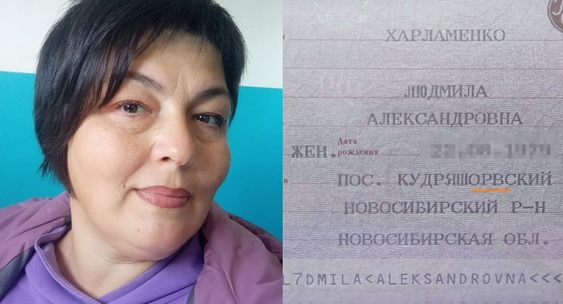 ХАРЛАМЕНКО
ЛЮДМИЛА
АЛЕКСАНДРОВНА
ЖЕН. Дата
рождения
ПОС. КУДРЯШОРВСКИЙ
НОВОСИБИРСКИЙ Р-Н
НОВОСИБИРСКАЯ ОБЛ.
L7DMILA<ALEKSANDROVNA<<<